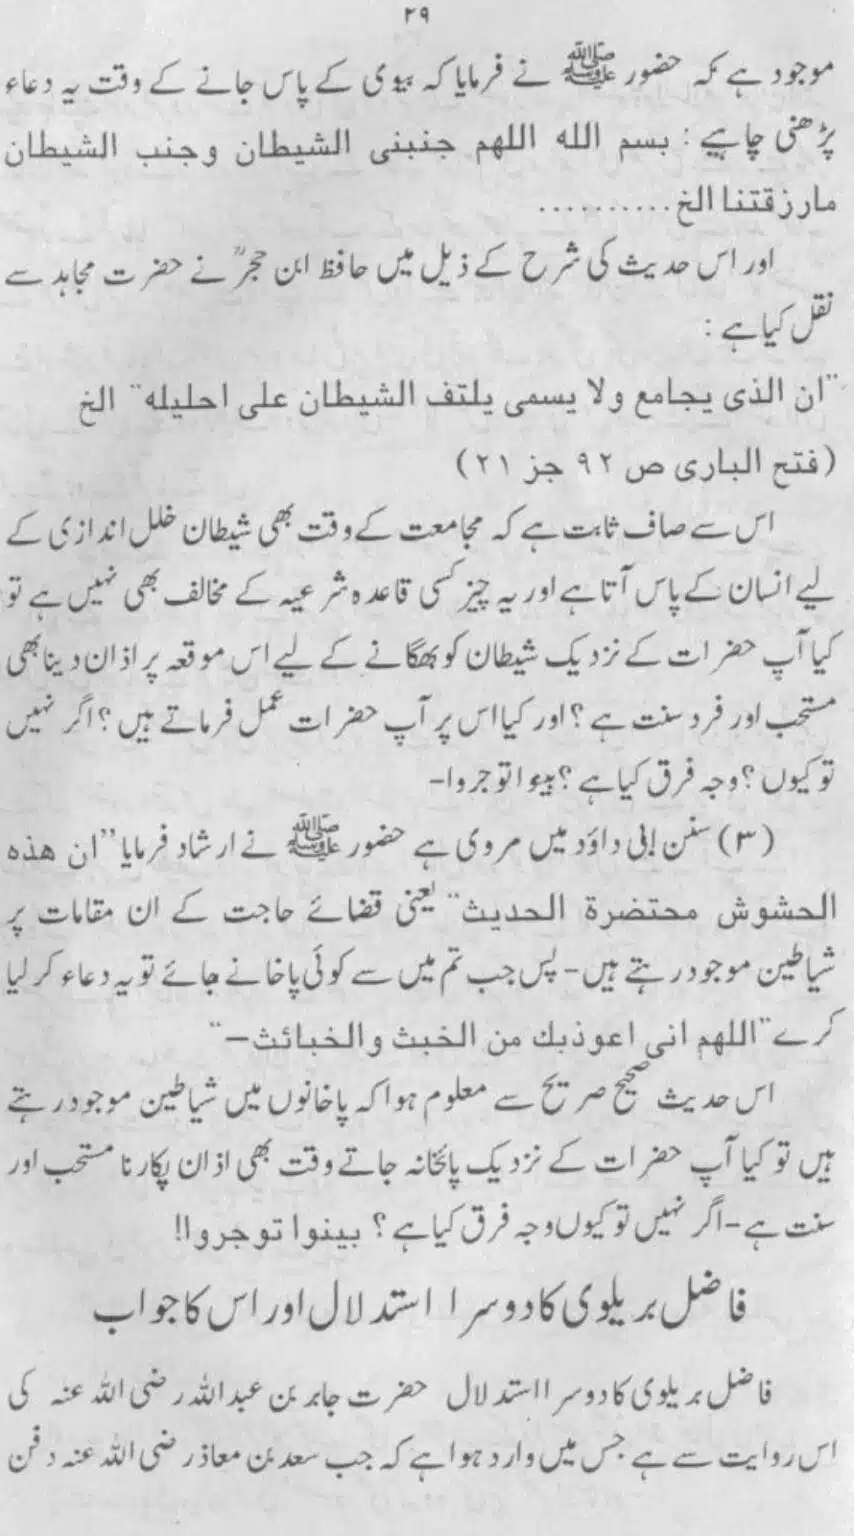 ۲۹
موجود ہے کہ حضور ﷺ نے فرمایا کہ بیوی کے پاس جانے کے وقت یہ دعاء
پڑھنی چاہیے : بسم الله اللهم جنبنى الشيطان وجنب الشيطان
مارزقتنا الخ..........
اور اس حدیث کی شرح کے ذیل میں حافظ ابن حجرؒ نے حضرت مجاہد سے
نقل کیا ہے :
"ان الذى يجامع ولا يسمى يلتف الشيطان على احليله" الخ
(فتح البارى ص ۹۲ جز ۲۱)
اس سے صاف ثابت ہے کہ مجامعت کے وقت بھی شیطان خلل اندازی کے
لیے انسان کے پاس آتا ہے اور یہ چیز کسی قاعدہ شرعیہ کے مخالف بھی نہیں ہے تو
کیا آپ حضرات کے نزدیک شیطان کو بھگانے کے لیے اس موقعہ پر اذان دینا بھی
مستحب اور فرد سنت ہے ؟ اور کیا اس پر آپ حضرات عمل فرماتے ہیں ؟ اگر نہیں
تو کیوں ؟ وجہ فرق کیا ہے ؟ بینوا توجروا-
(۳) سنن ابی داؤد میں مروی ہے حضور ﷺ نے ارشاد فرمایا "ان هذه
الحشوش محتضرة الحديث" یعنی قضائے حاجت کے ان مقامات پر
شیاطین موجود رہتے ہیں- پس جب تم میں سے کوئی پاخانے جائے تو یہ دعاء کر لیا
کرے "اللهم انى اعوذبك من الخبث والخبائث-"
اس حدیث صحیح صریح سے معلوم ہوا کہ پاخانوں میں شیاطین موجود رہتے
ہیں تو کیا آپ حضرات کے نزدیک پائخانہ جاتے وقت بھی اذان پکارنا مستحب اور
سنت ہے- اگر نہیں تو کیوں وجہ فرق کیا ہے ؟ بینوا توجروا!!
فاضل بریلوی کا دوسرا استدلال اور اس کا جواب
فاضل بریلوی کا دوسرا استدلال حضرت جابر بن عبداللہ رضی اللہ عنہ کی
اس روایت سے ہے جس میں وارد ہوا ہے کہ جب سعد بن معاذ رضی اللہ عنہ دفن